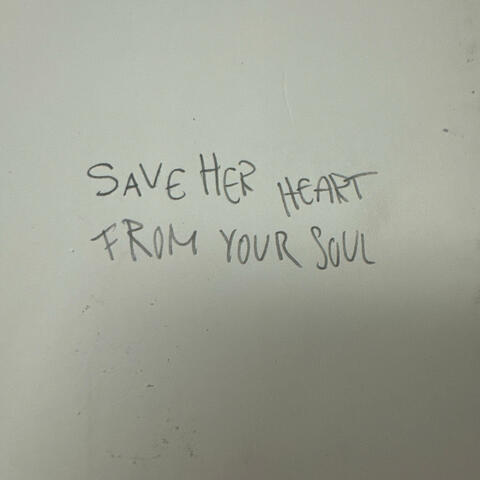 SAVE HER HEART
FROM YOUR SOUL